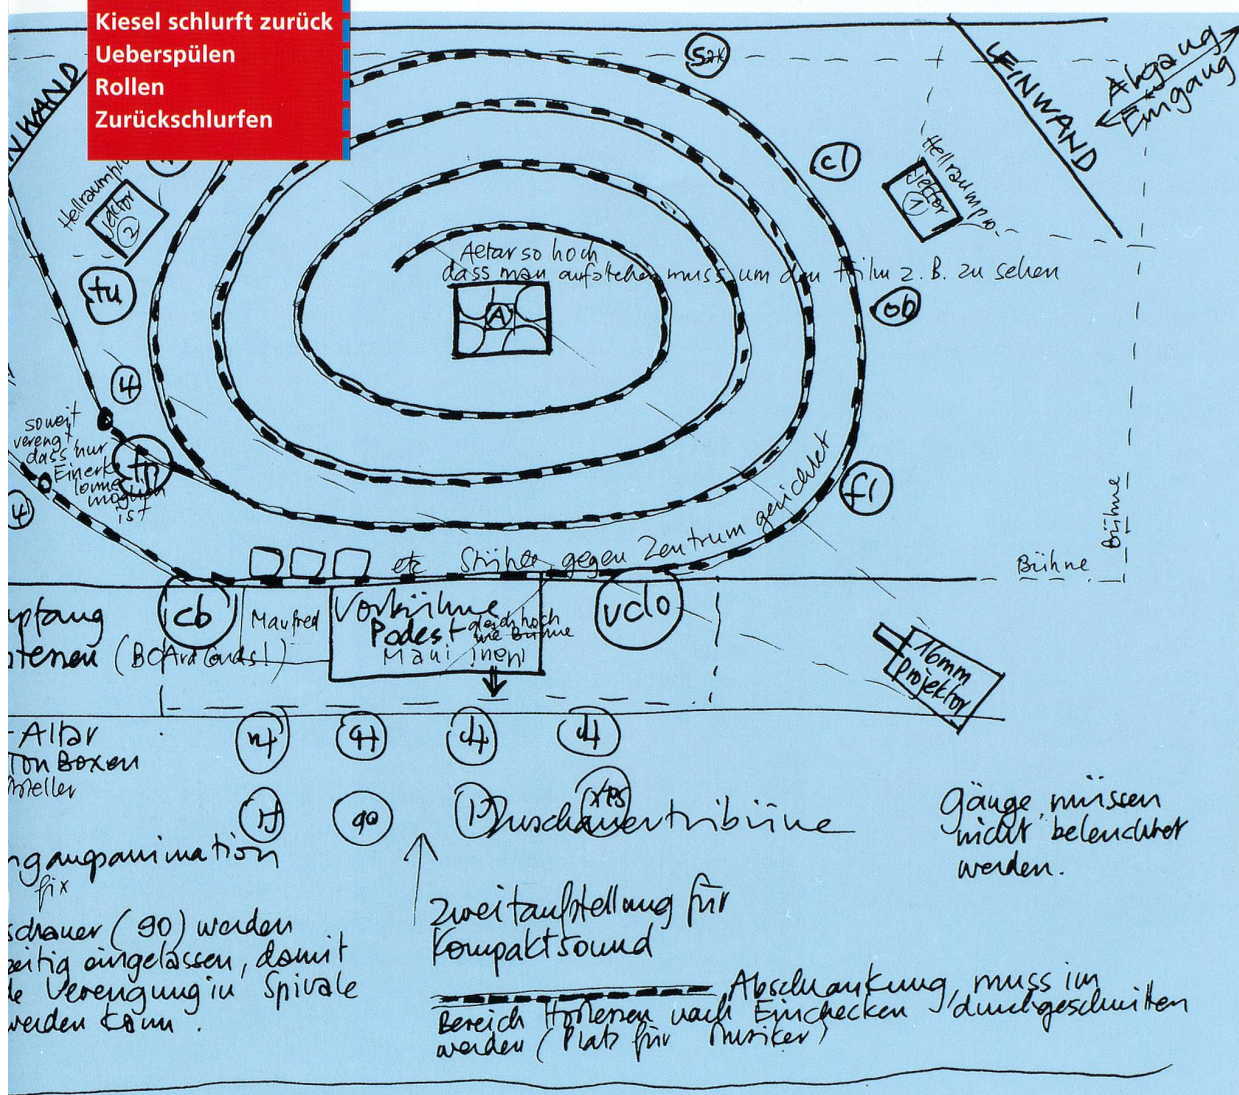 Kiesel schlurft zurück
Ueberspülen
Rollen
Zurückschlurfen
sax
LEINWAND
Abgang
Eingang
NWAND
cl
Hellraumpro
jektor
1
Hellraumpro
jektor
2
Altar so hoch
dass man aufstehen muss um den Film z. B. zu sehen
tu
A
ob
soweit
verengt
dass nur
Einerk
lonne
möglich
ist
fl
etc Stühle gegen Zentrum gerichtet
Bühne
Bühne
cb
Manfred
Vorbühne
Podest gleich hoch
wie Bühne
vclo
pfang
16mm
projektor
-Altar
Ton Boxen
Zuschauertribüne
Gänge müssen
nicht beleuchtet
werden.
ngangsanimation
fix
schauer (90) werden
zeitig eingelassen, damit
de Verengung in Spirale
werden kann.
Zweitaufstellung für
Kompaktsound
Abschrankung, muss im
Bereich Hostessen nach Einchecken durchgeschnitten
werden (Platz für Musiker)